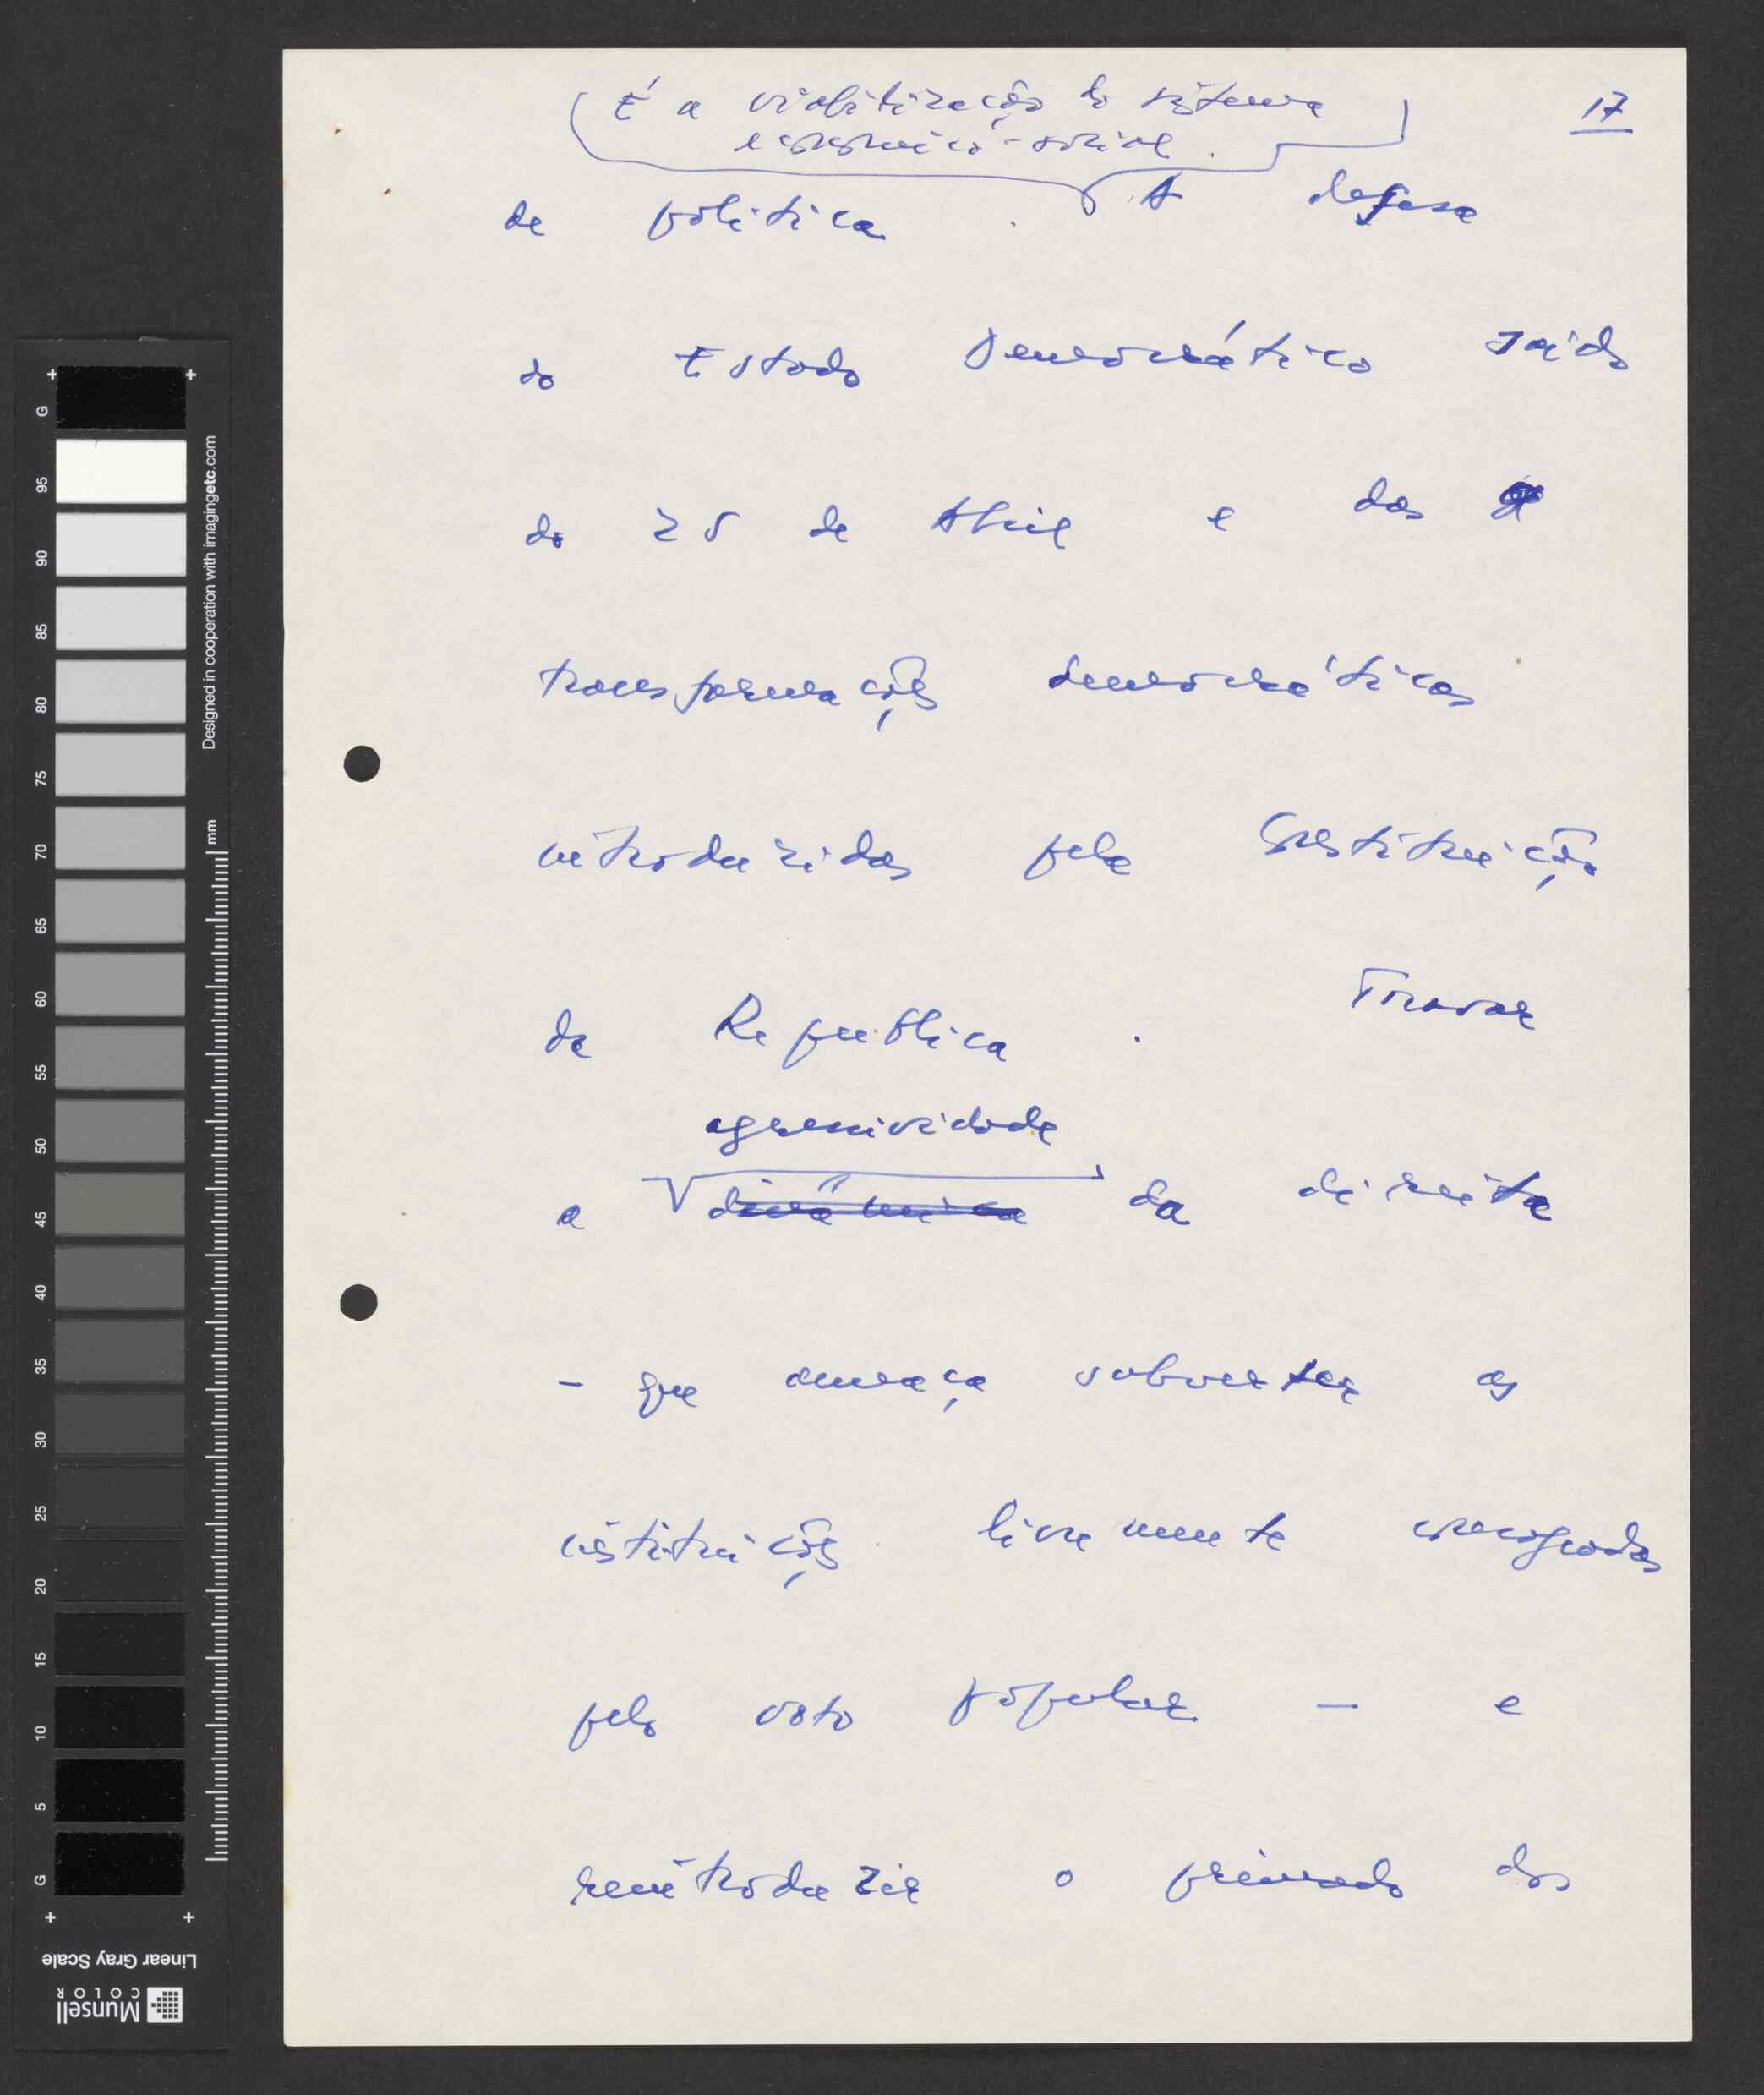 17
É a viabilização do sistema
económico-social.
de política. A defesa
do Estado Democrático saído
do 25 de Abril e das
transformações democráticas
introduzidas pela Constituição
da República. Travar
agressividade
a dinâmica da direita
- que ameaça subverter as
instituições livremente consagradas
pelo voto popular — e
reintroduzir o primado dos
G 95 90 85 80 75 70 65 60 55 50 45 40 35 30 25 20 15 10 5 G
Designed in cooperation with imagingetc.com
mm
Linear Gray Scale
Munsell
COLOR